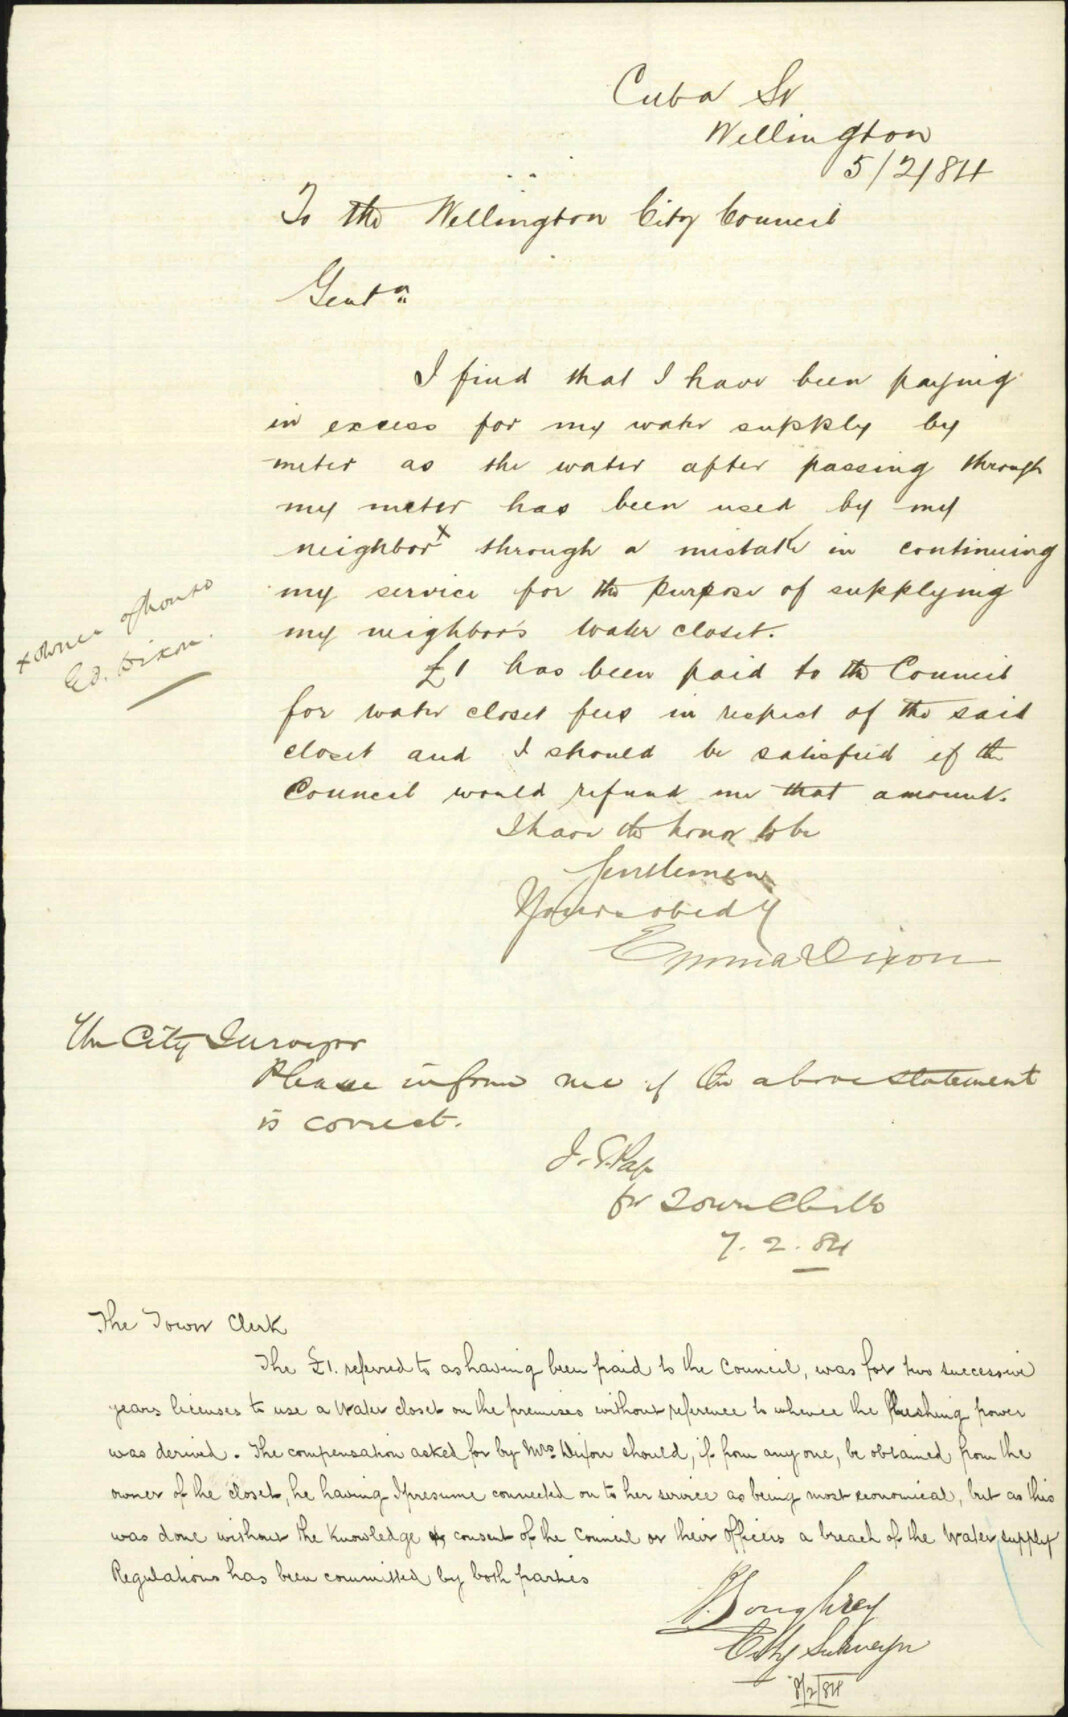 Cuba St
Wellington
5/2/84
To the Wellington City Council
Gentn
I find that I have been paying
in excess for my water supply by
meter as the water after passing through
my meter has been used by my
neighbor x through a mistake in continuing
my service for the purpose of supplying
my neighbor's water closet.
x owner of house
Ed. Dixon.
£1 has been paid to the Council
for water closet fees in respect of the said
closet and I should be satisfied if the
Council would refund me that amount.
I have the honor to be
Gentlemen
Yours obedy
Emma Dixon
The City Surveyor
Please inform me if the above statement
is correct.
J. S. Page
for Town Clerk
7. 2. 84
The Town Clerk
The £1. referred to as having been paid to the Council, was for two successive
years licenses to use a Water closet on the premises without reference to whence the flushing power
was derived. The compensation asked for by Mrs Dixon should, if from any one, be obtained from the
owner of the closet, he having I presume connected on to her service as being most economical, but as this
was done without the knowledge or consent of the Council or their Officers a breach of the Water supply
Regulations has been committed by both parties
Loughrey
City Surveyor
8/2/84